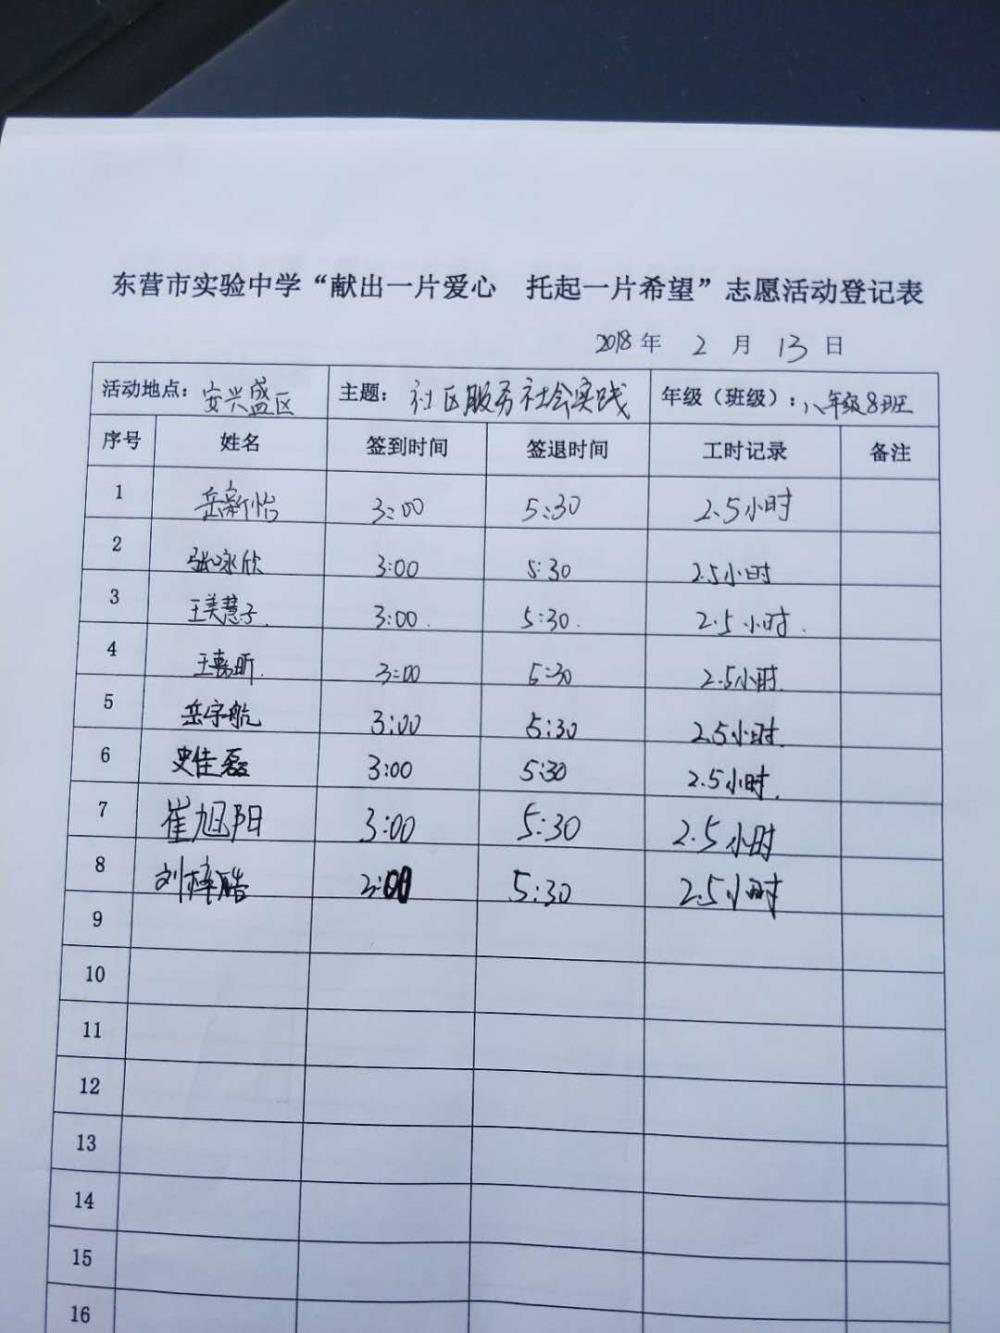 东营市实验中学“献出一片爱心 托起一片希望”志愿活动登记表
2018年 2 月 13 日
活动地点：安兴盛区 主题：社区服务社会实践 年级（班级）：八年级8班
序号 姓名 签到时间 签退时间 工时记录 备注
1 岳新怡 3:00 5:30 2.5小时
2 张咏欣 3:00 5:30 2.5小时
3 王美慧子 3:00 5:30 2.5小时
4 3:00 5:30 2.5小时
5 岳宇航 3:00 5:30 2.5小时
6 史佳磊 3:00 5:30 2.5小时
7 崔旭阳 3:00 5:30 2.5小时
8 刘梓皓 3:00 5:30 2.5小时
9
10
11
12
13
14
15
16